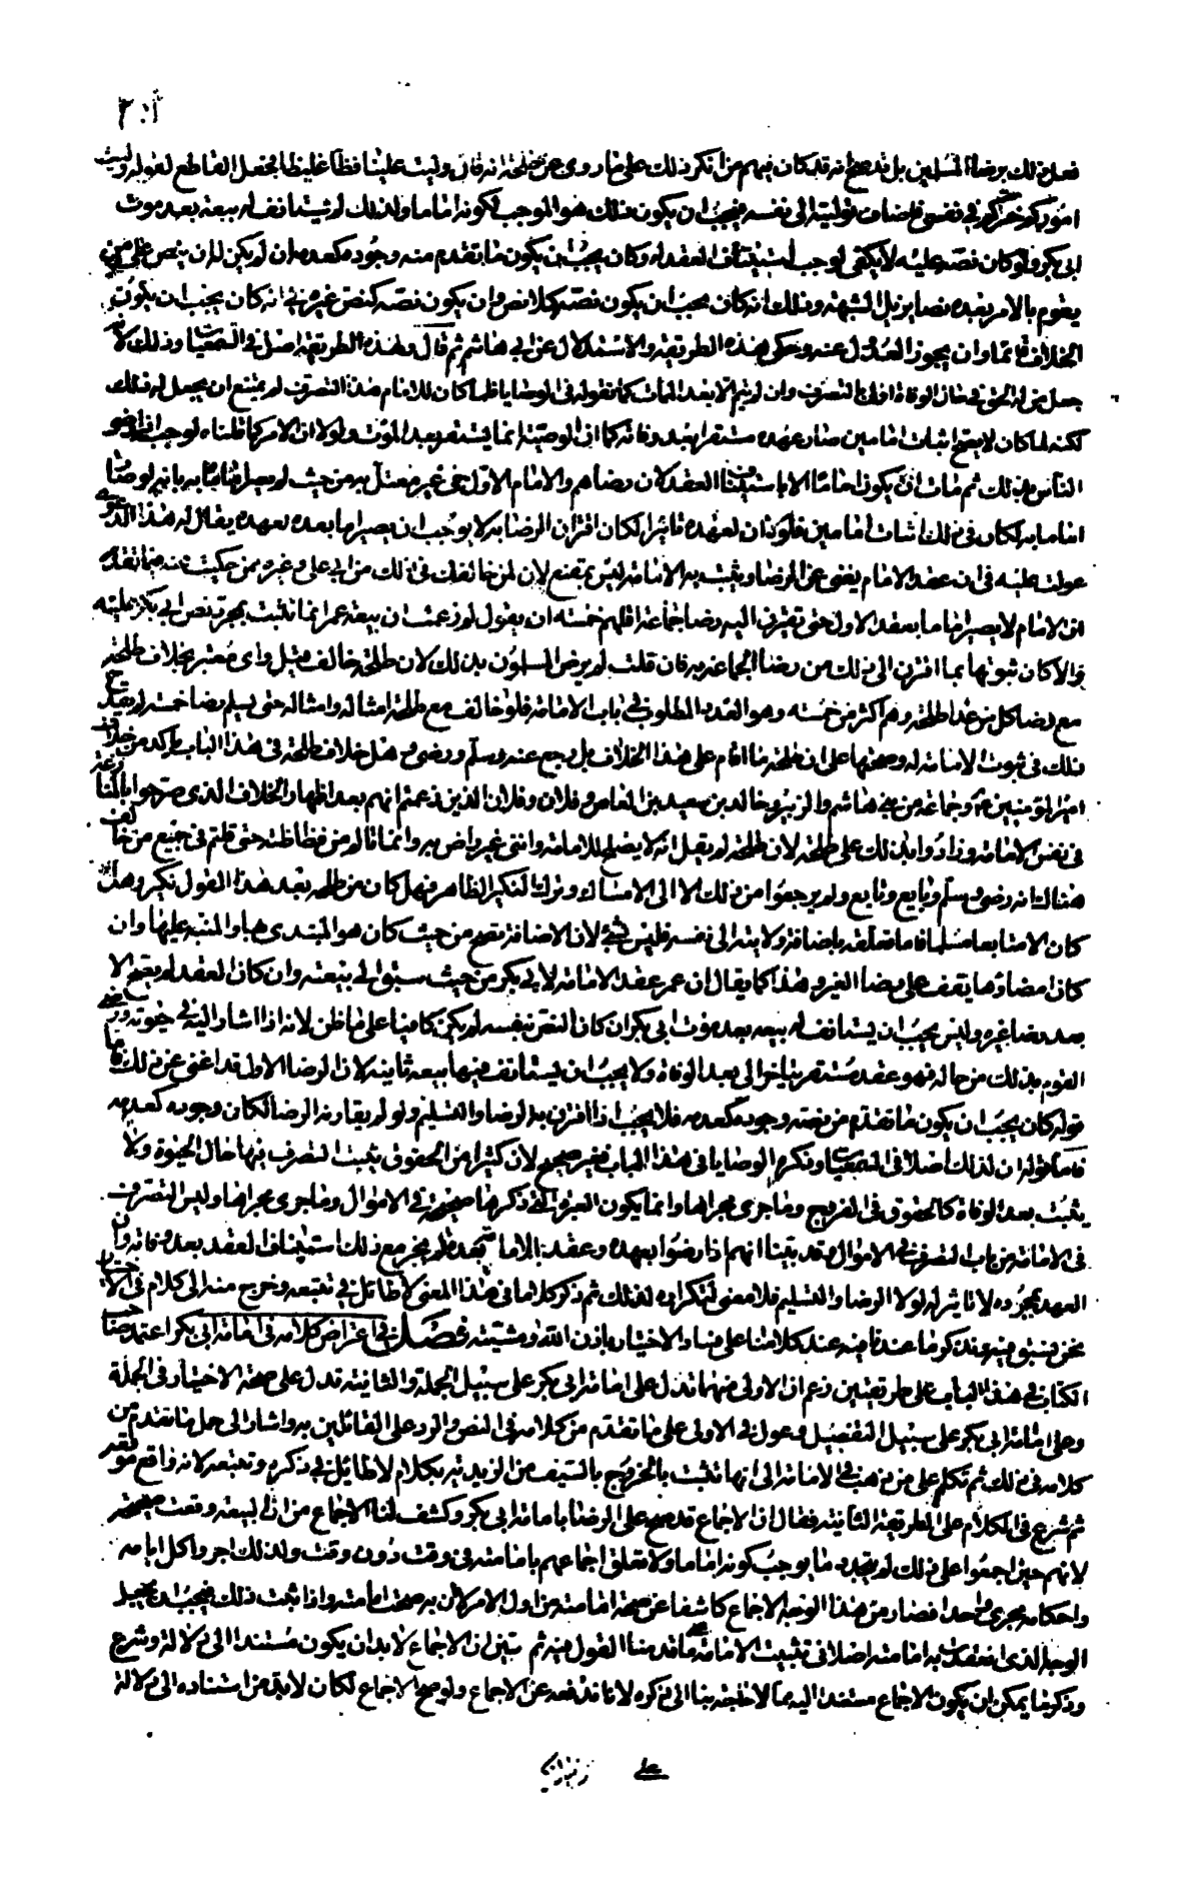 فعل ذلك برضا المسلمين بل قد صح انه قد كان فيهم من انكر ذلك على ما روى عن طلحة انه قال وليت علينا فظا غليظا فجعل القاطع لقوله وليت
اموركم خيركم في نفسي فاضاف توليته الى نفسه فيجب ان يكون ذلك هو الموجب لكونه اماما ولذلك لم يستأنف له بيعة بعد موت
ابي بكر ولو كان نصه عليه لا يكفي لوجب استيناف العقد له وكان يجب ان يكون ما تقدم منه وجوده كعدمه وان لم يكن لان ينص على من
يقوم بالامر بعده نصا يزيل الشبهة وذلك انه كان يجب ان يكون نصه كلا نص وان يكون نصه كنص غيره في انه كان يجب ان يكون
الخلاف قائما وان يجوز العدول عنه وحكى هذه الطريقة والاستدلال عن ابي هاشم ثم قال ولهذه الطريقة اصل في السمعيات وذلك لانه
جعل من له الحق في حال الوفاة اولى بالتصرف وان لم يتم الا بعد الممات كما نقوله في الوصايا فلما كان للامام هذا التصرف لم يمتنع ان يجعل له ذلك
لكنه لما كان لا يصح اثبات امامين صار عهده مستقرا بعد وفاته كما ان الوصية انما يستقر بعد الموت ولولا ان الامر كما قلناه لوجب اذا رضو
الناس بذلك ثم مات ان يكون اماما الا باستيناف العقد لان رضاهم والامام الاول حي غير معتد به من حيث لو صار اماما به بايعه لو صار
اماما به لكان في ذلك اثبات امامين فلو كان لعهده تاثيرا لكان اقتران الرضا به لا يوجب ان يصير اماما بعده بعهده يقال له هذا الذي
عولت عليه في ان عقد الامام يغني عن الرضا ويثبت به الامامة ليس بمقنع لان لمن خالفك في ذلك من ابي علي وغيره ممن حكيت عنه فيما تقدم
ان الامام لا يصير اماما بعقد الاول حتى يقترن اليه رضا جماعة اقلهم خمسة ان يقول لم زعمت ان بيعة عمر انما تثبت بمجرد نص ابي بكر عليه
والا كان ثبوتها بما اقترن الى ذلك من رضا الجماعة به فان قلت لم يرض المسلمون بذلك لان طلحة خالف قيل واي معتبر بخلاف طلحة
مع رضا كل من عدا طلحة وهم اكثر من خمسة وهو العدد المطلوب في باب الامامة فلو خالف مع طلحة امثاله وامثاله حتى يسلم رضا خمسة لم يقدح
ذلك في ثبوت الامامة له وصحتها على ان طلحة ما اقام على هذا الخلاف بل رجع عنه وسلم ورضى وهل خلاف طلحة في هذا الباب باوكد من خلاف
امير المؤمنين وجماعة من بني هاشم والزبير وخالد بن سعيد بن العاص وفلان وفلان الذين زعمتم انهم بعد اظهار الخلاف الذي صرحوا بالمنازعة
في نفس الامامة وزادوا بذلك على طلحة لان طلحة لم يقل انه لا يصلح للامامة وانني غير راض به وانما تالم من فظاظته حتى قلتم في جميع من خالف
هناك انه رضى وسلم وبايع وتابع ولم يرجعوا من ذلك الا الى الامساك وترك النكير الظاهر فهل كان من طلحة بعد هذا القول نكير وهل
كان الا متابعا مسلما فاما تعلقه باضافة ولايته الى نفسه فليس بشئ لان الاضافة تصح من حيث كان هو المبتدي بها والمنبه عليها وان
كان مضاؤها يقف على رضا الغير وهذا كما يقال ان عمر عقد الامامة لابي بكر من حيث سبق الى بيعته وان كان العقد لم يصح الا
بعد رضا غيره وليس يجب ان يستانف له بيعة بعد موت ابي بكر ان كان النص بنفسه لم يكن كافيا على ما ظن لانه اذا اشار اليه في حيوته ورضي
القوم بذلك من حاله فهو عقد مستقر تاخر الى بعد الوفاة ولا يجب ان يستانف فيها بيعة ثانية لان الرضا الاول قد اغنى عن ذلك فاما
قوله كان يجب ان يكون ما تقدم من نصه وجوده كعدمه فلا يجب اذا اقترن به الرضا والتسليم ولو لم يقارنه الرضا لكان وجوده كعدمه
فاما قوله ان لذلك اصلا في السمعيات وذكره الوصايا في هذا الباب فغير صحيح لان كثيرا من الحقوق يثبت التصرف فيها حال الحيوة ولا
يثبت بعد الوفاة كالحقوق في الفروج وما جرى مجراها وانما يكون العبرة التي ذكرها صحيحة في الاموال وما جرى مجراها وليس التصرف
في الامامة من باب التصرف في الاموال وقد بينا انهم اذا رضوا بعهده وعقده بالامامة بعده لم يحتج مع ذلك استيناف العقد بعد وفاته وان
العهد بمجرده لا تاثير له لولا الرضا والتسليم فلا معنى لتكراره لذلك ثم ذكر كلاما في هذا المعنى لا طائل في تتبعه وخرج منه الى كلام في الاختيار
نحن نستوفيه ونذكر ما عندنا فيه عند كلامنا على فساد الاختيار باذن الله ومشيته فصل في اعتراض كلامه في امامة ابي بكر اعتمد صاحب
الكتاب في هذا الباب على طريقتين زعم ان الاولى منهما تدل على امامة ابي بكر على سبيل الجملة والثانية تدل على صحة الاختيار في الجملة
وعلى امامة ابي بكر على سبيل التفصيل وعول في الاولى على ما تقدم من كلامه في النص والرد على القائلين به واشار الى جمل ما تقدم من
كلامه في ذلك ثم تكلم على من يذهب في الامامة الى انها تثبت بالخروج بالسيف من الزيدية بكلام لا طائل في ذكره وتتبعه لانه واقع موقعه
ثم شرع في الكلام على الطريقة الثانية فقال ان الاجماع قد صح على الرضا بامامة ابي بكر وكشف لنا الاجماع من ان البيعة وقعت صحيحة
لانهم حين اجمعوا على ذلك لم يتجدد ما يوجب كونه اماما ولا تعلق اجماعهم بامامته في وقت دون وقت ولذلك اجروا كل ايامه
واحكامه مجرى واحدا فصار من هذا الوجه الاجماع كاشفا عن صحة امامته من اول الامر لان به صحت امامته واذا ثبت ذلك فيجب ان يجعل
الوجه الذي انعقدت به امامته اصلا في تثبيت الامامة على ما قدمنا القول فيه ثم بين ان الاجماع لابد ان يكون مستندا الى دلالة وشرع
وذكر ما يمكن ان يكون الاجماع مستندا اليه مما لا حاجة بنا الى ذكره لانا ندفعه عن الاجماع ولو صح الاجماع لكان لابد من استناده الى دلالة